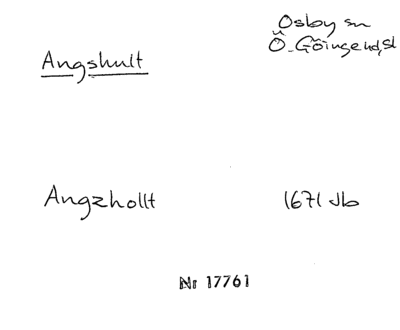 Angshult
Osby sn
Ö. Göinge hd, sk
Angzhollt
1671 Jb
Nr 17761